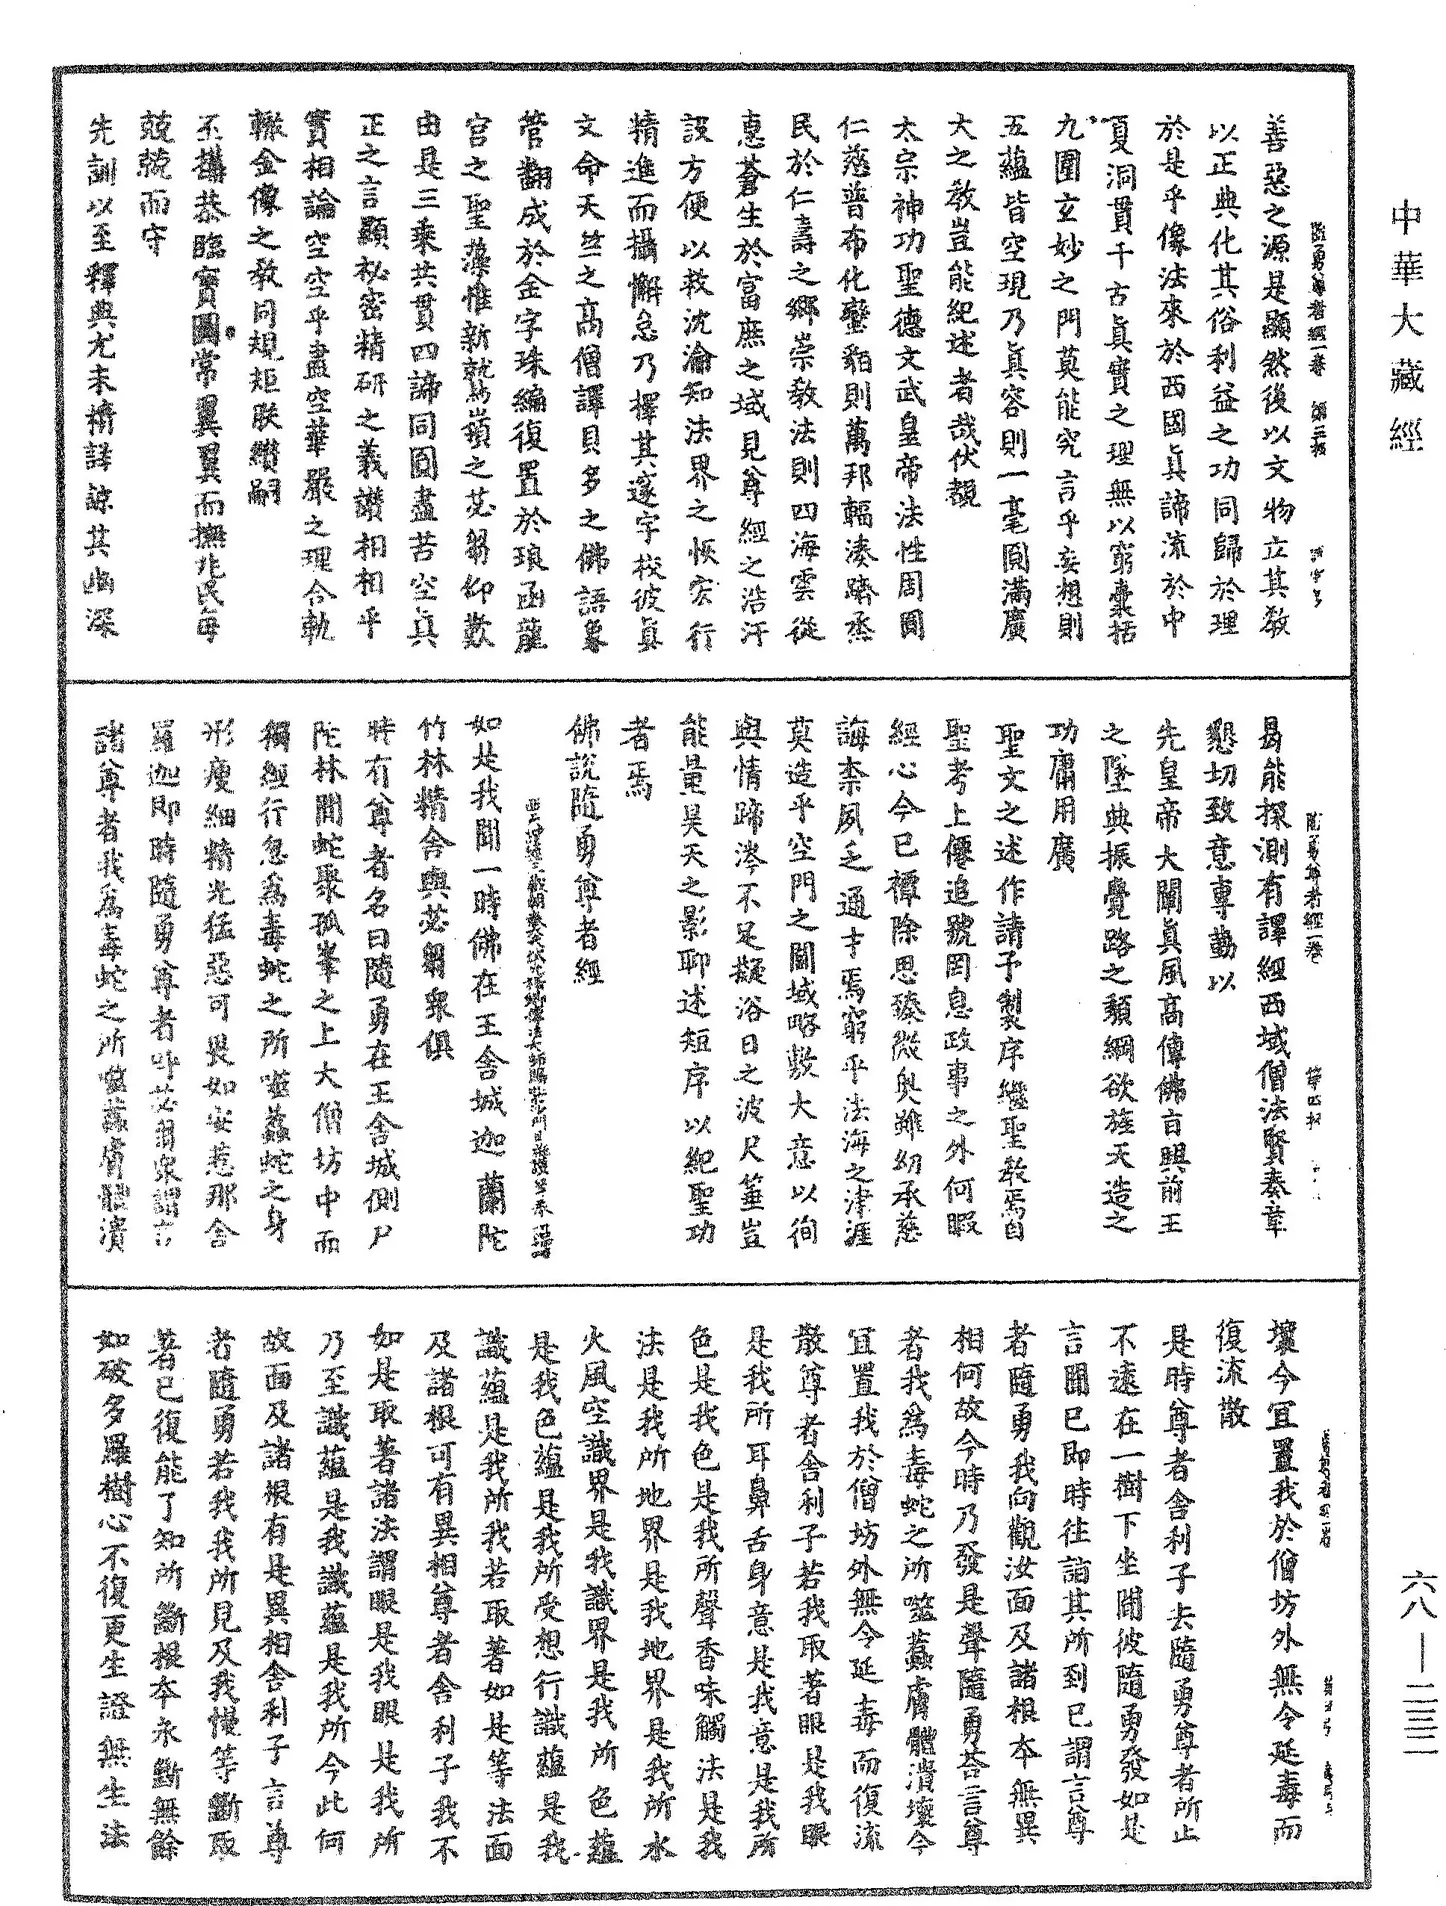 中華大藏經
隨勇尊者經一卷　第三板
善惡之源是顯然後以文物立其教
以正典化其俗利益之功同歸於理
於是乎像法來於西國真諦流於中
夏洞貫千古真實之理無以窮囊括
九圍玄妙之門莫能究言乎妄想則
五蘊皆空現乃真容則一毫圓滿廣
大之教豈能紀述者哉伏覩
太宗神功聖德文武皇帝法性周圓
仁慈普布化蠻貊則萬邦輻湊躋烝
民於仁壽之鄉崇教法則四海雲從
惠蒼生於富庶之域見尊經之浩汗
設方便以救沈淪知法界之恢宏行
精進而攝懈怠乃擇其邃宇校彼真
文命天竺之高僧譯貝多之佛語象
管翻成於金字珠編復置於琅函龍
宮之聖藻惟新鷲嶺之苾芻仰歎
由是三乘共貫四諦同圓盡苦空真
正之言顯祕密精研之義讚相相乎
實相論空空乎盡空華嚴之理合軌
轍金傳之教同規矩朕纘嗣
丕搆恭臨寶圖常翼翼而撫兆民每
兢兢而守
先訓以至釋典尤未精詳諒其幽深
隨勇尊者經一卷　第四板
曷能探測有譯經西域僧法賢奏章
懇切致意專勤以
先皇帝大闡真風高傳佛旨興前王
之墜典振覺路之頹綱欲旌天造之
功庸用廣
聖文之述作請予製序繼聖教焉自
聖考上僊追號罔息政事之外何暇
經心今已禫除思臻微奧雖幼承慈
誨柰夙乏通才焉窮乎法海之津涯
莫造乎空門之閫域略敷大意以徇
輿情蹄涔不足擬浴日之波尺箠豈
能量昊天之影聊述短序以紀聖功
者焉
佛說隨勇尊者經
如是我聞一時佛在王舍城迦蘭陀
竹林精舍與苾芻衆俱
時有尊者名曰隨勇在王舍城側尸
陀林間蛇聚孤峯之上大僧坊中而
獨經行忽為毒蛇之所噬蠚蛇之身
形瘦細精光猛惡可畏如安惹那舍
羅迦即時隨勇尊者呼苾芻衆謂言
諸尊者我為毒蛇之所噬蠚膚體潰
壞今宜置我於僧坊外無令延毒而
復流散
是時尊者舍利子去隨勇尊者所止
不遠在一樹下坐聞彼隨勇發如是
言聞已即時往詣其所到已謂言尊
者隨勇我向觀汝面及諸根本無異
相何故今時乃發是聲隨勇荅言尊
者我為毒蛇之所噬蠚膚體潰壞今
宜置我於僧坊外無令延毒而復流
散尊者舍利子若我取著眼是我眼
是我所耳鼻舌身意是我意是我所
色是我色是我所聲香味觸法是我
法是我所地界是我地界是我所水
火風空識界是我識界是我所色蘊
是我色蘊是我所受想行識蘊是我
識蘊是我所我若取著如是等法面
及諸根可有異相尊者舍利子我不
如是取著諸法謂眼是我眼是我所
乃至識蘊是我識蘊是我所今此何
故面及諸根有是異相舍利子言尊
者隨勇若我我所見及我慢等斷取
著已復能了知所斷根本永斷無餘
如破多羅樹心不復更生證無生法
六八—二三二